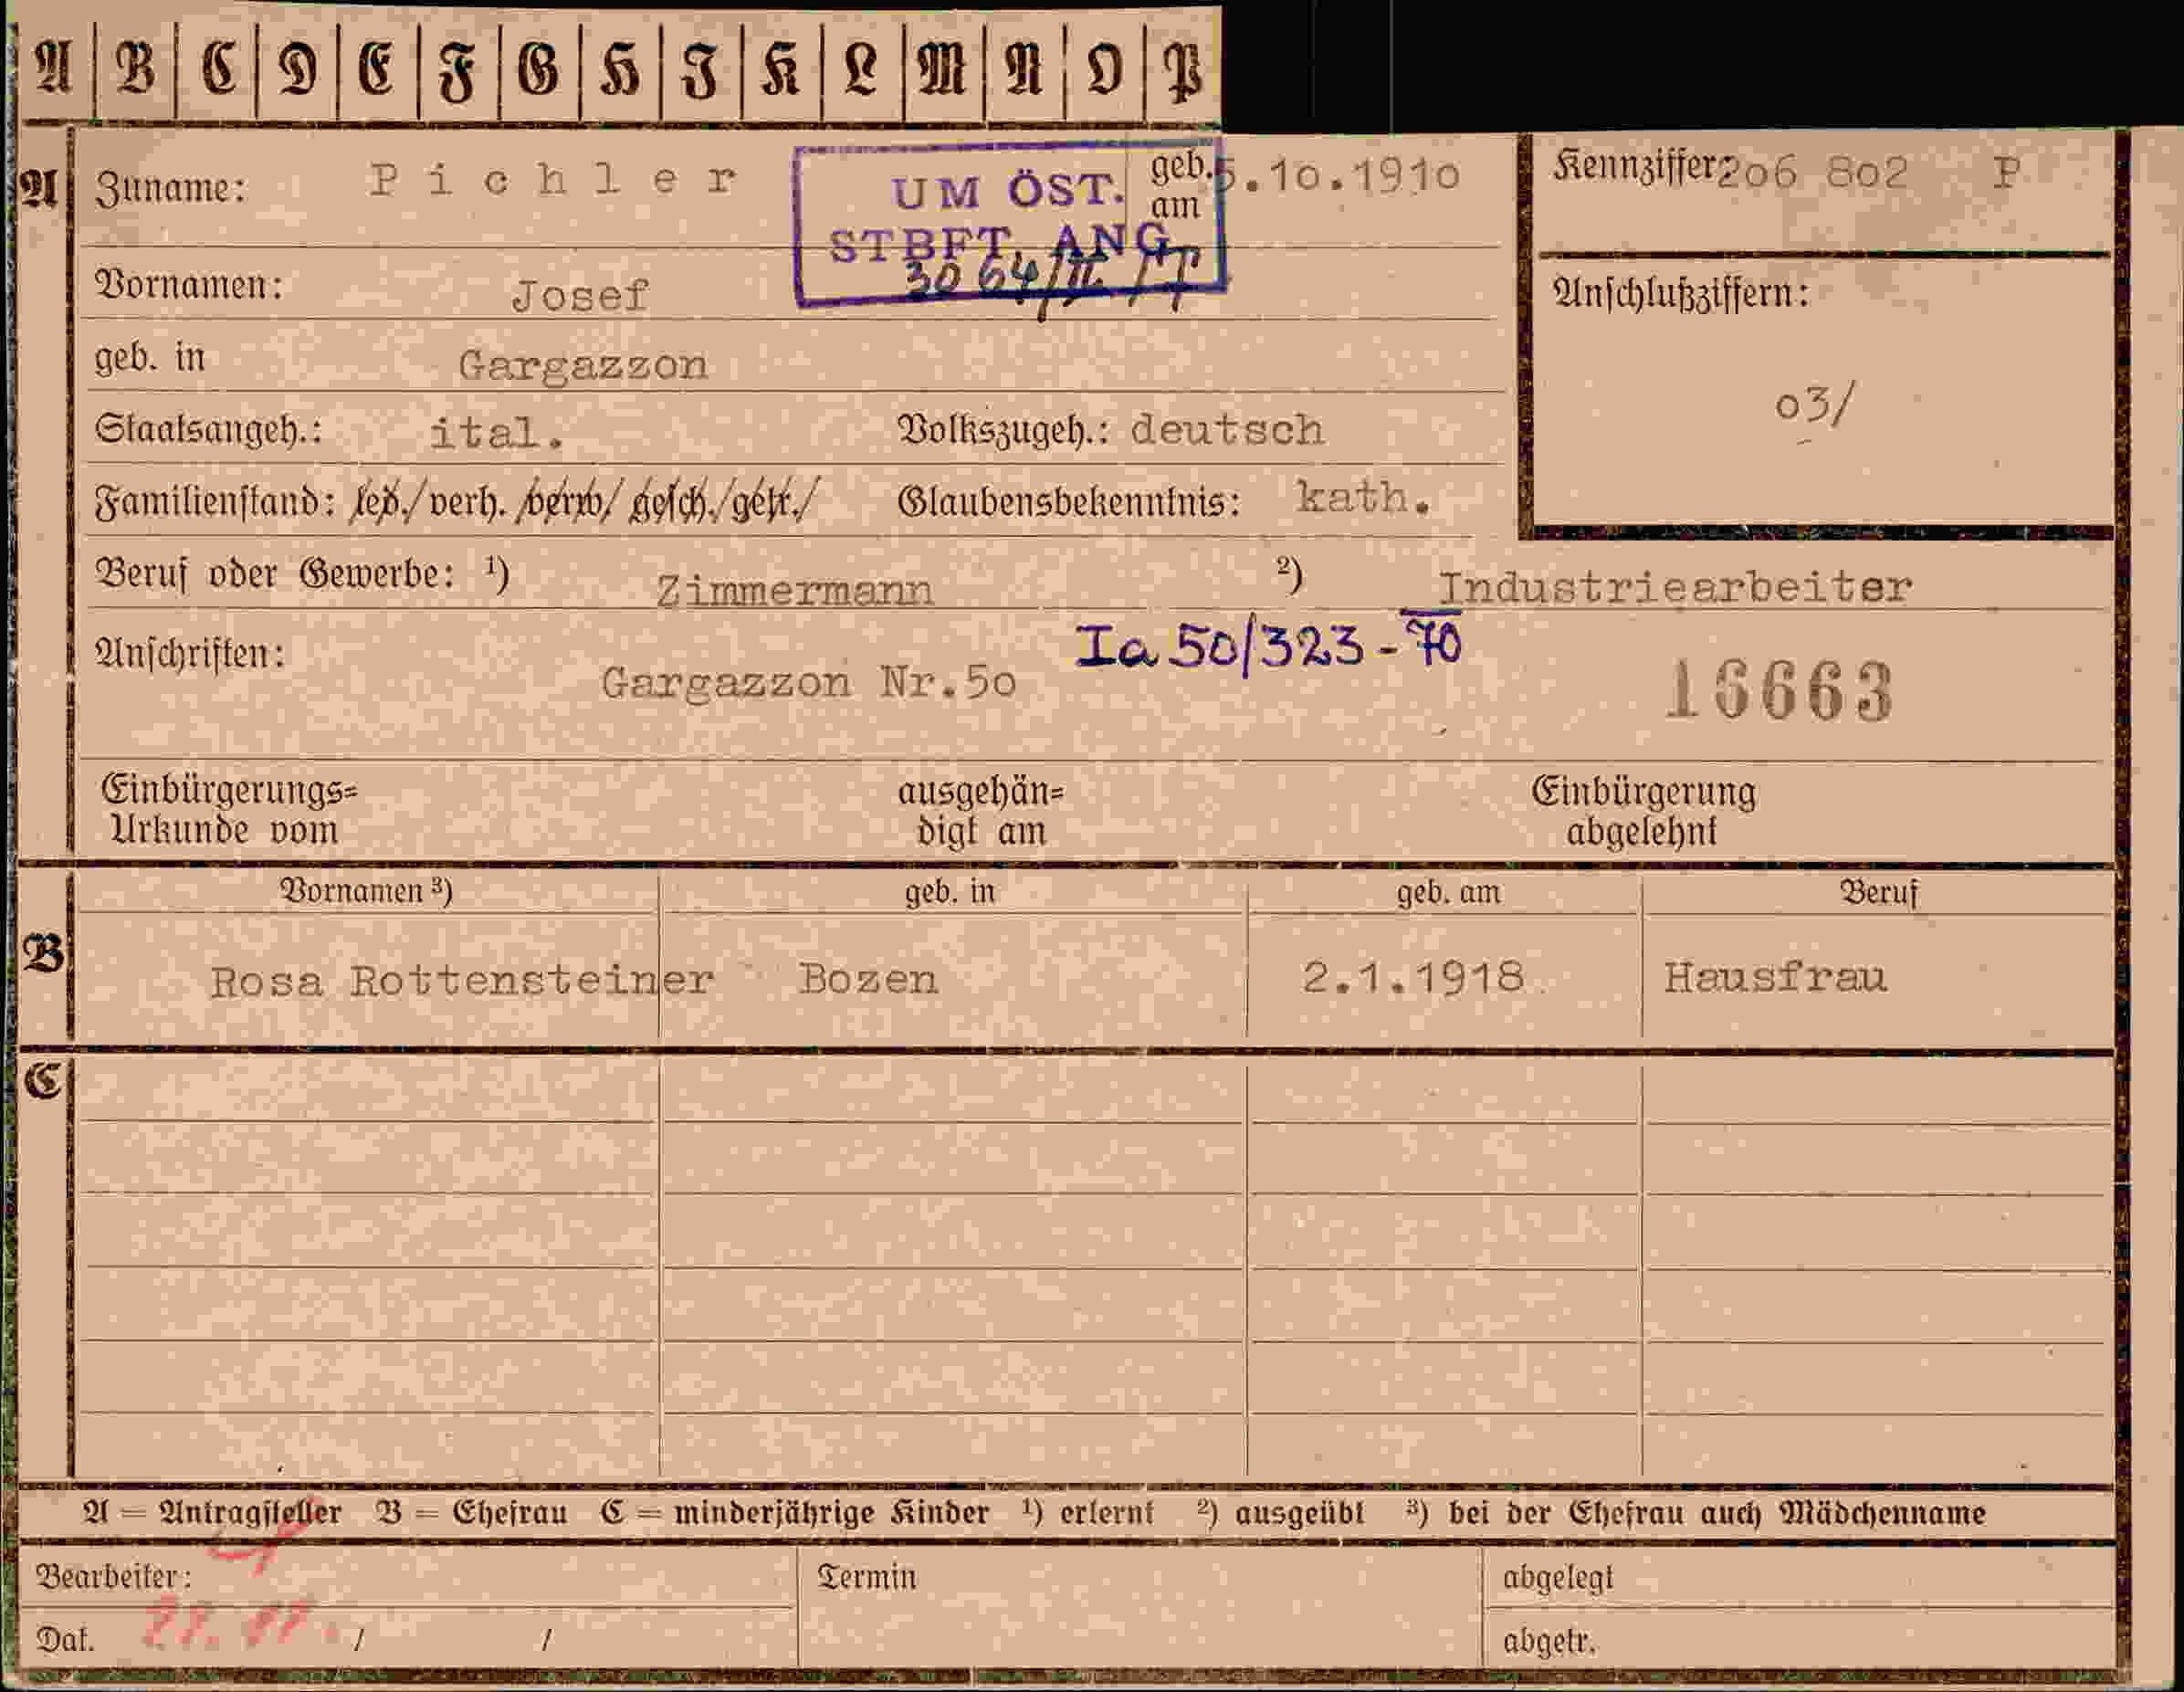 A B C D E F G H J K L M N O P
A Zuname: Pichler geb. am 5.10.1910 Kennziffer: 206 802 P
UM ÖST.
STBFT. ANG
3064/II
Vornamen: Josef Anschlußziffern:
geb. in Gargazzon
03/
Staatsangeh.: ital. Volkszugeh.: deutsch
Familienstand: led./verh. verw/gesch./getr./ Glaubensbekenntnis: kath.
Beruf oder Gewerbe: 1) Zimmermann 2) Industriearbeiter
Ia 50/323-70
Anschriften: Gargazzon Nr.50 16663
Einbürgerungs= ausgehän= Einbürgerung
Urkunde vom digt am abgelehnt
Vornamen 3) geb. in geb. am Beruf
B Rosa Rottensteiner Bozen 2.1.1918 Hausfrau
C
A = Antragsteller B = Ehefrau C = minderjährige Kinder 1) erlernt 2) ausgeübt 3) bei der Ehefrau auch Mädchenname
Bearbeiter: Termin abgelegt
Dat. / / abgetr.